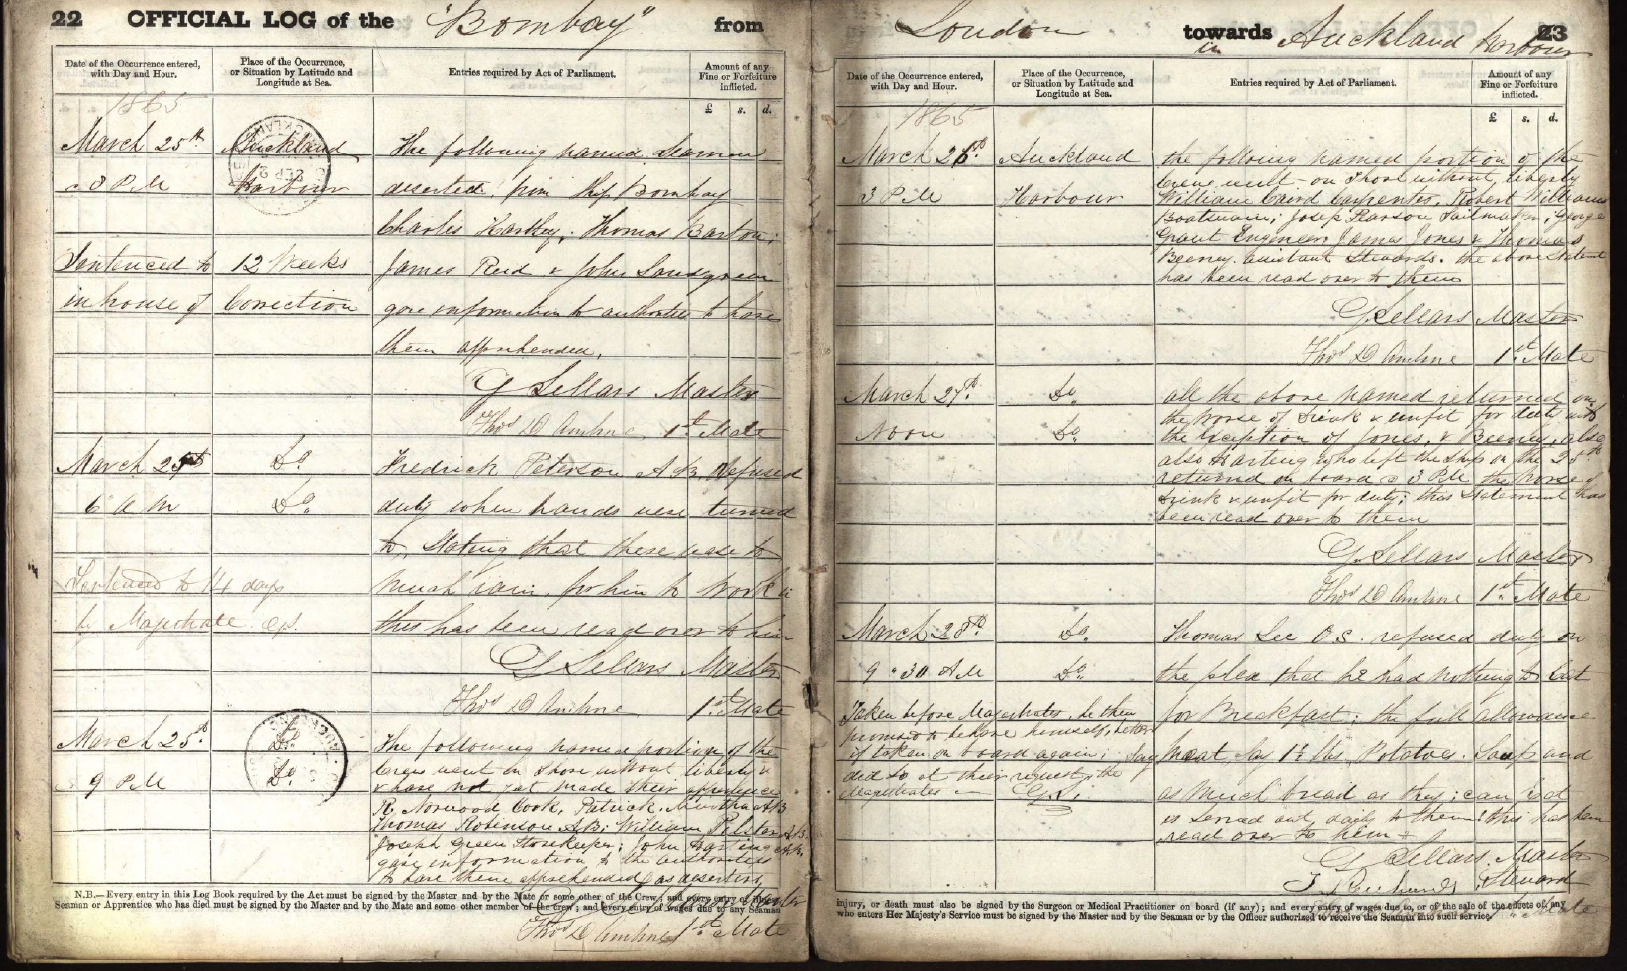 22 OFFICIAL LOG of the "Bombay" from
Date of the Occurrence entered, with Day and Hour.
Place of the Occurrence, or Situation by Latitude and Longitude at Sea.
Entries required by Act of Parliament.
Amount of any Fine or Forfeiture inflicted.
£ s. d.
1865
March 25th Auckland The following named Seamen
3 PM Harbour deserted from ship Bombay
Charles Hartley, Thomas Barton,
Sentenced to 12 Weeks James Reid & John
in house of Correction gave information to authorities to have
them apprehended.
G Sellars Master
Thos D 1st Mate
March 25th Do Fredrick Peterson AB Refused
6 a m Do duty when hands were turned
to, Stating that there was to
Sentenced to 14 days much rain for him to work in
by Magistrate this has been read over to him
G Sellars Master
Thos D 1st Mate
March 25th Do The following named portion of the
9 PM Do Crew went on shore without liberty &
& have not yet made their appearance
R. Norwood Cook, Patrick AB
Thomas Robinson AB; William AB
Joseph Green Storekeeper; John Harting AB
gave information to the authorities
to have them apprehended as deserters
N.B.—Every entry in this Log Book required by the Act must be signed by the Master and by the Mate or some other of the Crew; and every entry of
Seaman or Apprentice who has died must be signed by the Master and by the Mate and some other member of the Crew; and every entry of wages due to any Seaman
Thos D 1st Mate
London towards in Auckland Harbour 23
Date of the Occurrence entered, with Day and Hour.
Place of the Occurrence, or Situation by Latitude and Longitude at Sea.
Entries required by Act of Parliament.
Amount of any Fine or Forfeiture inflicted.
£ s. d.
1865
March 26th Auckland the following named portion of the
Crew went on shore without liberty
3 PM Harbour William Caird Carpenter, Robert Williams
Boatswain; Josep Pearson Sailmaker; George
Grant Engineer James Jones & Thomas
Beeney Assistant Stewards. the above Statement
has been read over to them
G Sellars Master
Thos D 1st Mate
March 27th Do all the above named returned on
the worse of drink & unfit for duty with
Noon Do the exception of Jones, & Beeney, also
also Harting who left the Ship on the 25th
returned on board @ 3 PM the worse of
drink & unfit for duty; this Statement has
been read over to them
G Sellars Master
Thos D 1st Mate
March 28th Do Thomas Lee O.S. refused duty on
9 "30 AM Do the plea that he had nothing to Eat
Taken before Magistrates, he then for Breakfast; the full allowance
promised to behave himself better
if taken on board again; Say Meat Say 1½ lbs, Potatoes. Soup and
did so at their request, the
Magistrates as much bread as they can eat
is served out daily to them; this has been
read over to him
G Sellars Master
Steward
injury, or death must also be signed by the Surgeon or Medical Practitioner on board (if any); and every entry of wages due to, or of the sale of the effects of, any
who enters Her Majesty's Service must be signed by the Master and by the Seaman or by the Officer authorised to receive the Seaman into such service.